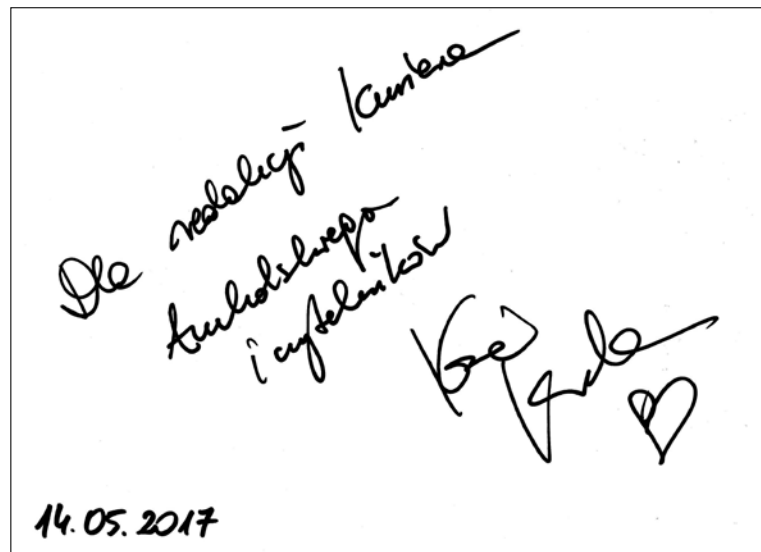 Dla redakcji Kuriera
Tucholskiego
i czytelników
14.05.2017